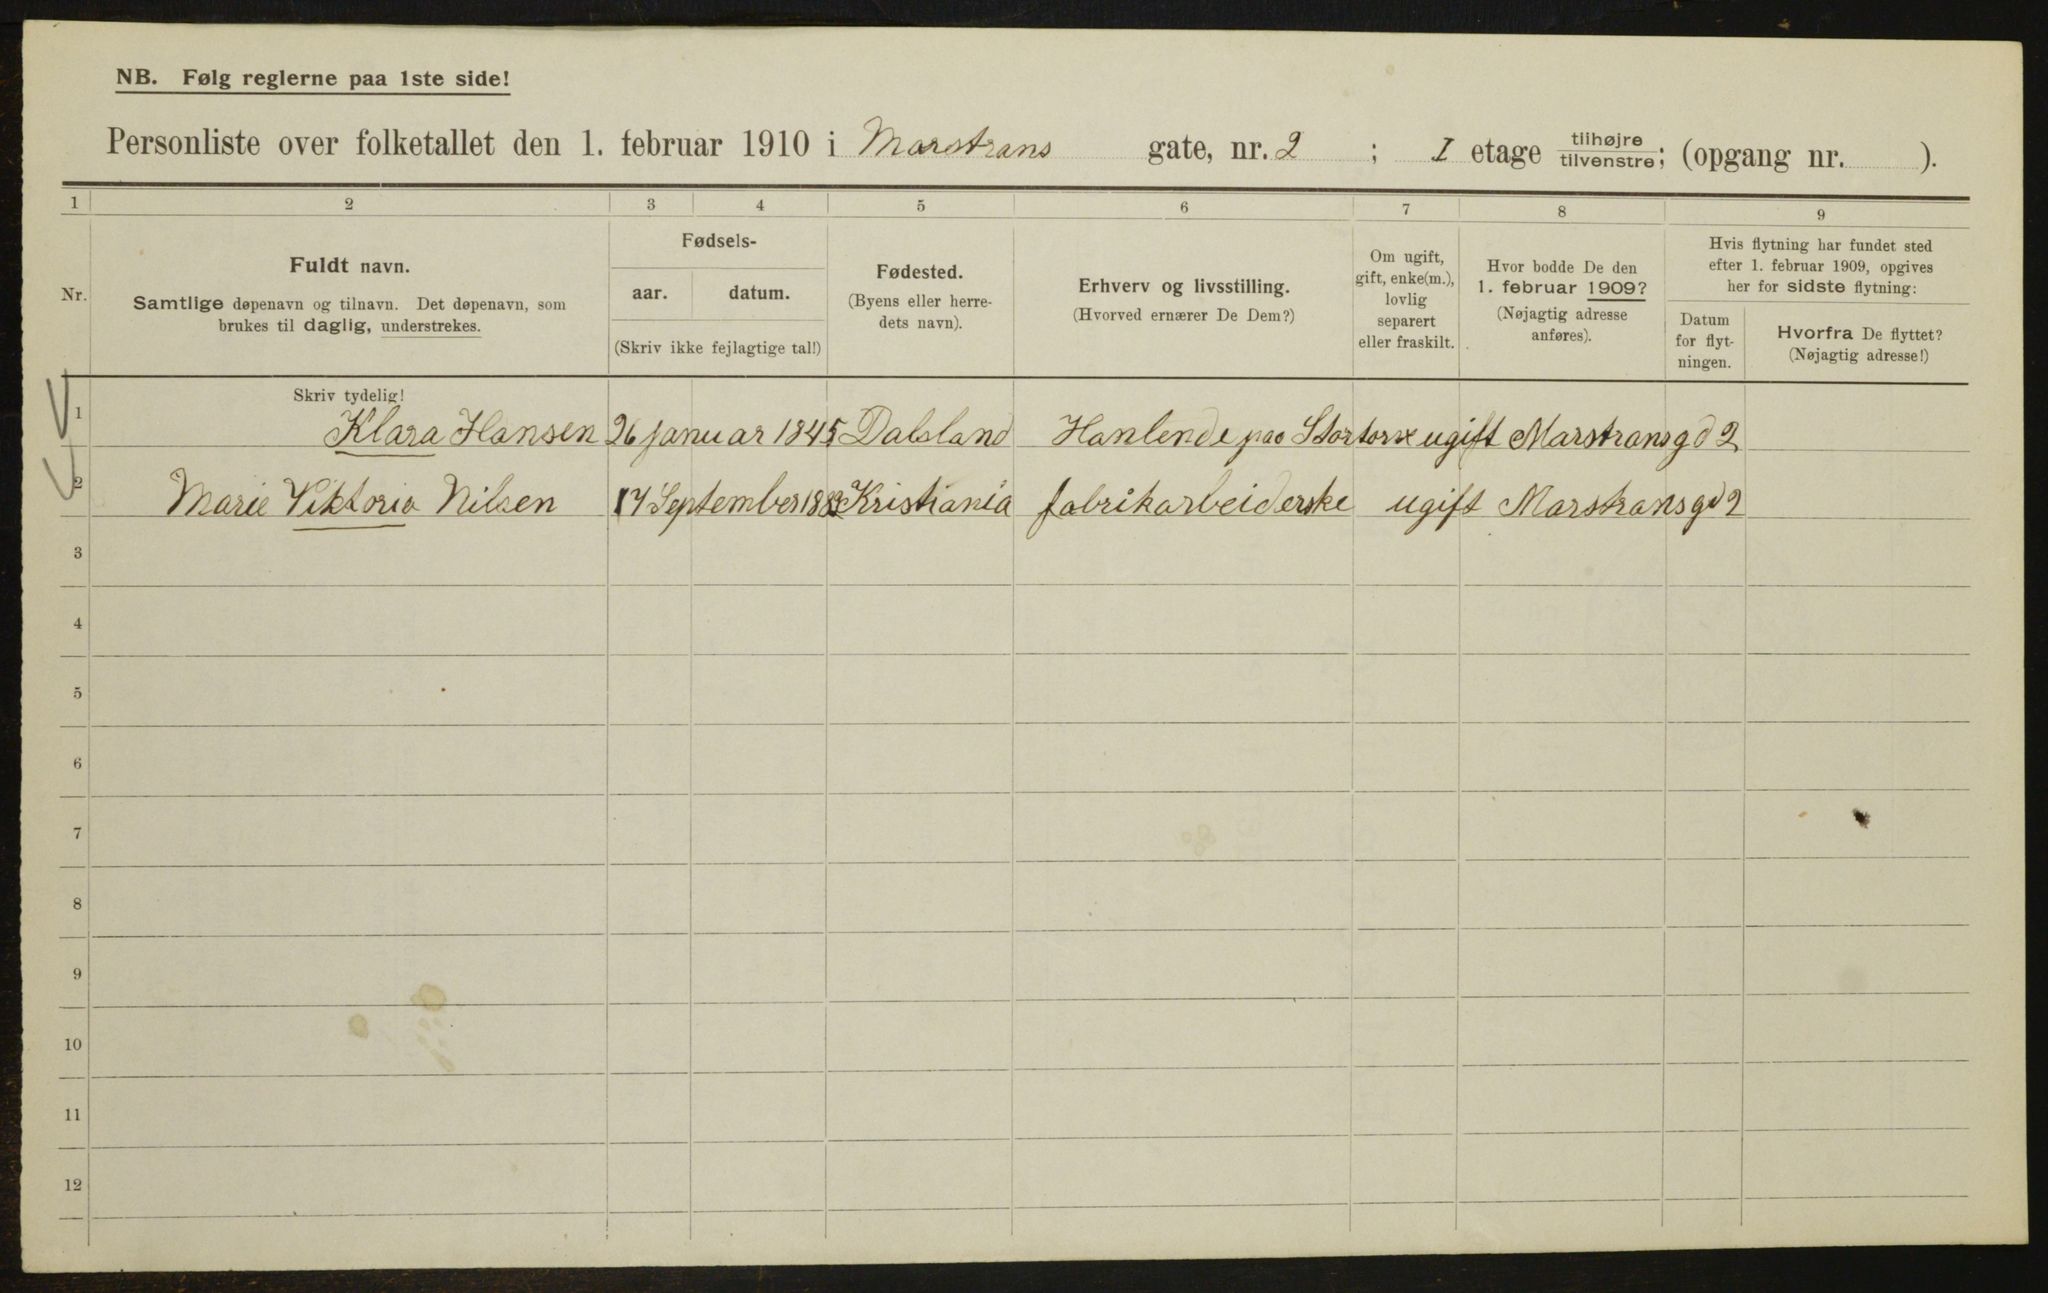 NB. Følg reglerne paa 1ste side!
Personliste over folketallet den 1. februar 1910 i Marstrans gate, nr. 2 ; I etage tilhøjre tilvenstre; (opgang nr. ).
1 2 3 4 5 6 7 8 9
Nr.
Fuldt navn.
Samtlige døpenavn og tilnavn. Det døpenavn, som
brukes til daglig, understrekes.
Fødsels-
aar. datum.
(Skriv ikke fejlagtige tal!)
Fødested.
(Byens eller herre-
dets navn).
Erhverv og livsstilling.
(Hvorved ernærer De Dem?)
Om ugift,
gift, enke(m.),
lovlig
separert
eller fraskilt.
Hvor bodde De den
1. februar 1909?
(Nøjagtig adresse
anføres).
Hvis flytning har fundet sted
efter 1. februar 1909, opgives
her for sidste flytning:
Datum
for flyt-
ningen.
Hvorfra De flyttet?
(Nøjagtig adresse!)
Skriv tydelig!
1 Klara Hansen 26 januar 1845 Dalsland Hanlende paa ugift Marstransgd 2
2 Marie Viktoria Nilsen 17 September Kristiania fabrikarbeiderske ugift Marstransgd 2
3
4
5
6
7
8
9
10
11
12